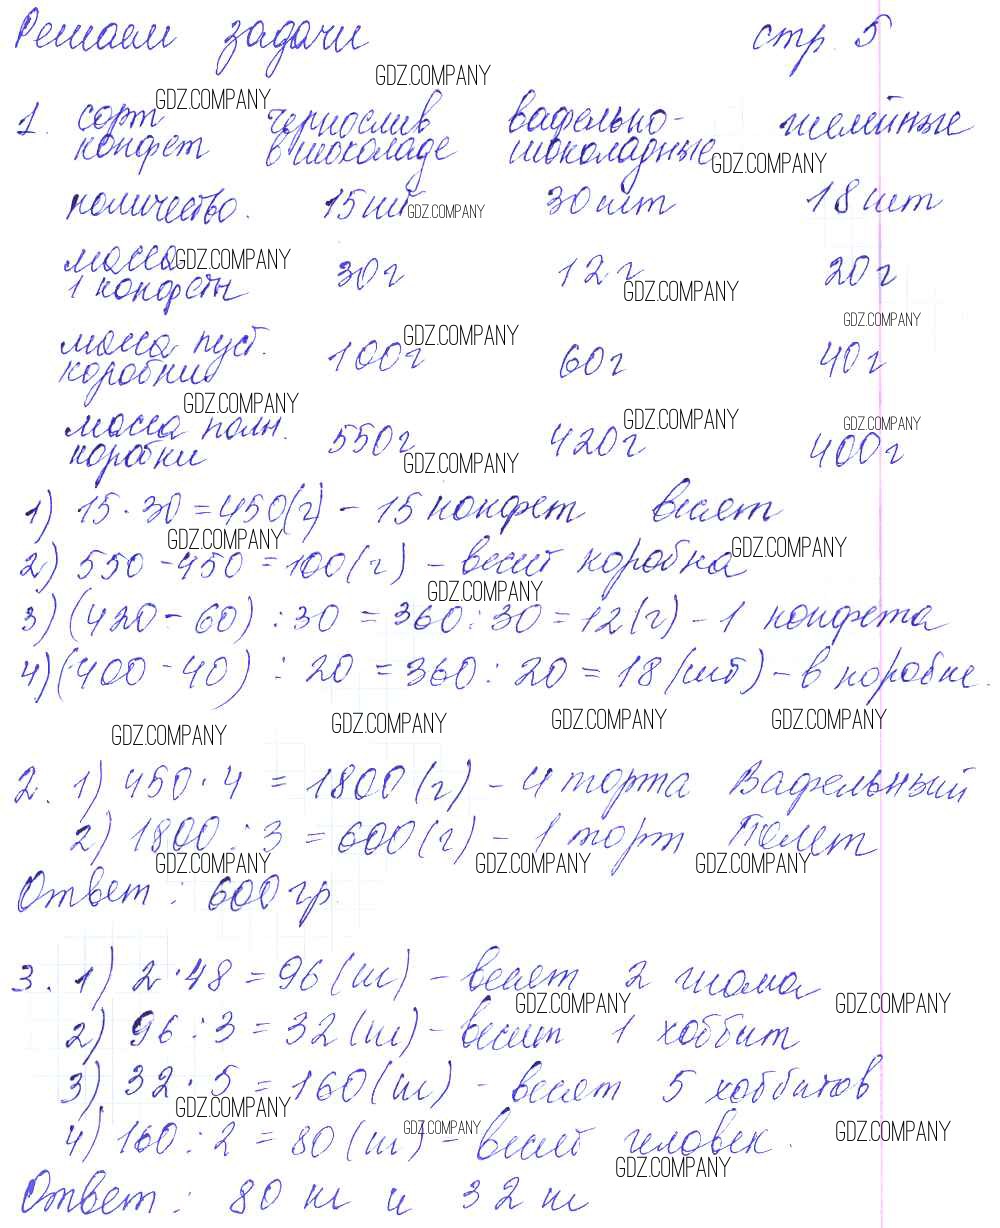 Решаем задачи стр. 5
GDZ.COMPANY
GDZ.COMPANY
1. сорт чернослив вафельно- желейные
конфет в шоколаде шоколадные
GDZ.COMPANY
количество. 15 шт 30 шт 18 шт
GDZ.COMPANY
масса
GDZ.COMPANY
1 конфеты 30 г 12 г 20 г
GDZ.COMPANY
GDZ.COMPANY
масса пуст.
GDZ.COMPANY
коробки 100 г 60 г 40 г
GDZ.COMPANY
масса полн.
GDZ.COMPANY
GDZ.COMPANY
коробки 550 г 420 г 400 г
GDZ.COMPANY
1) 15 · 30 = 450 (г) - 15 конфет весят
GDZ.COMPANY
GDZ.COMPANY
2) 550 - 450 = 100 (г) - весит коробка
GDZ.COMPANY
3) (420 - 60) : 30 = 360 : 30 = 12 (г) - 1 конфета
4) (400 - 40) : 20 = 360 : 20 = 18 (шт) - в коробке.
GDZ.COMPANY GDZ.COMPANY GDZ.COMPANY GDZ.COMPANY
2. 1) 450 · 4 = 1800 (г) - 4 торта Вафельный
2) 1800 : 3 = 600 (г) - 1 торт Полет
GDZ.COMPANY GDZ.COMPANY GDZ.COMPANY
Ответ: 600 гр.
3. 1) 2 · 48 = 96 (ш) - весят 2 гнома
GDZ.COMPANY GDZ.COMPANY
2) 96 : 3 = 32 (ш) - весит 1 хоббит
3) 32 · 5 = 160 (ш) - весят 5 хоббитов
GDZ.COMPANY
4) 160 : 2 = 80 (ш) - весит человек.
GDZ.COMPANY GDZ.COMPANY
GDZ.COMPANY
Ответ: 80 ш и 32 ш